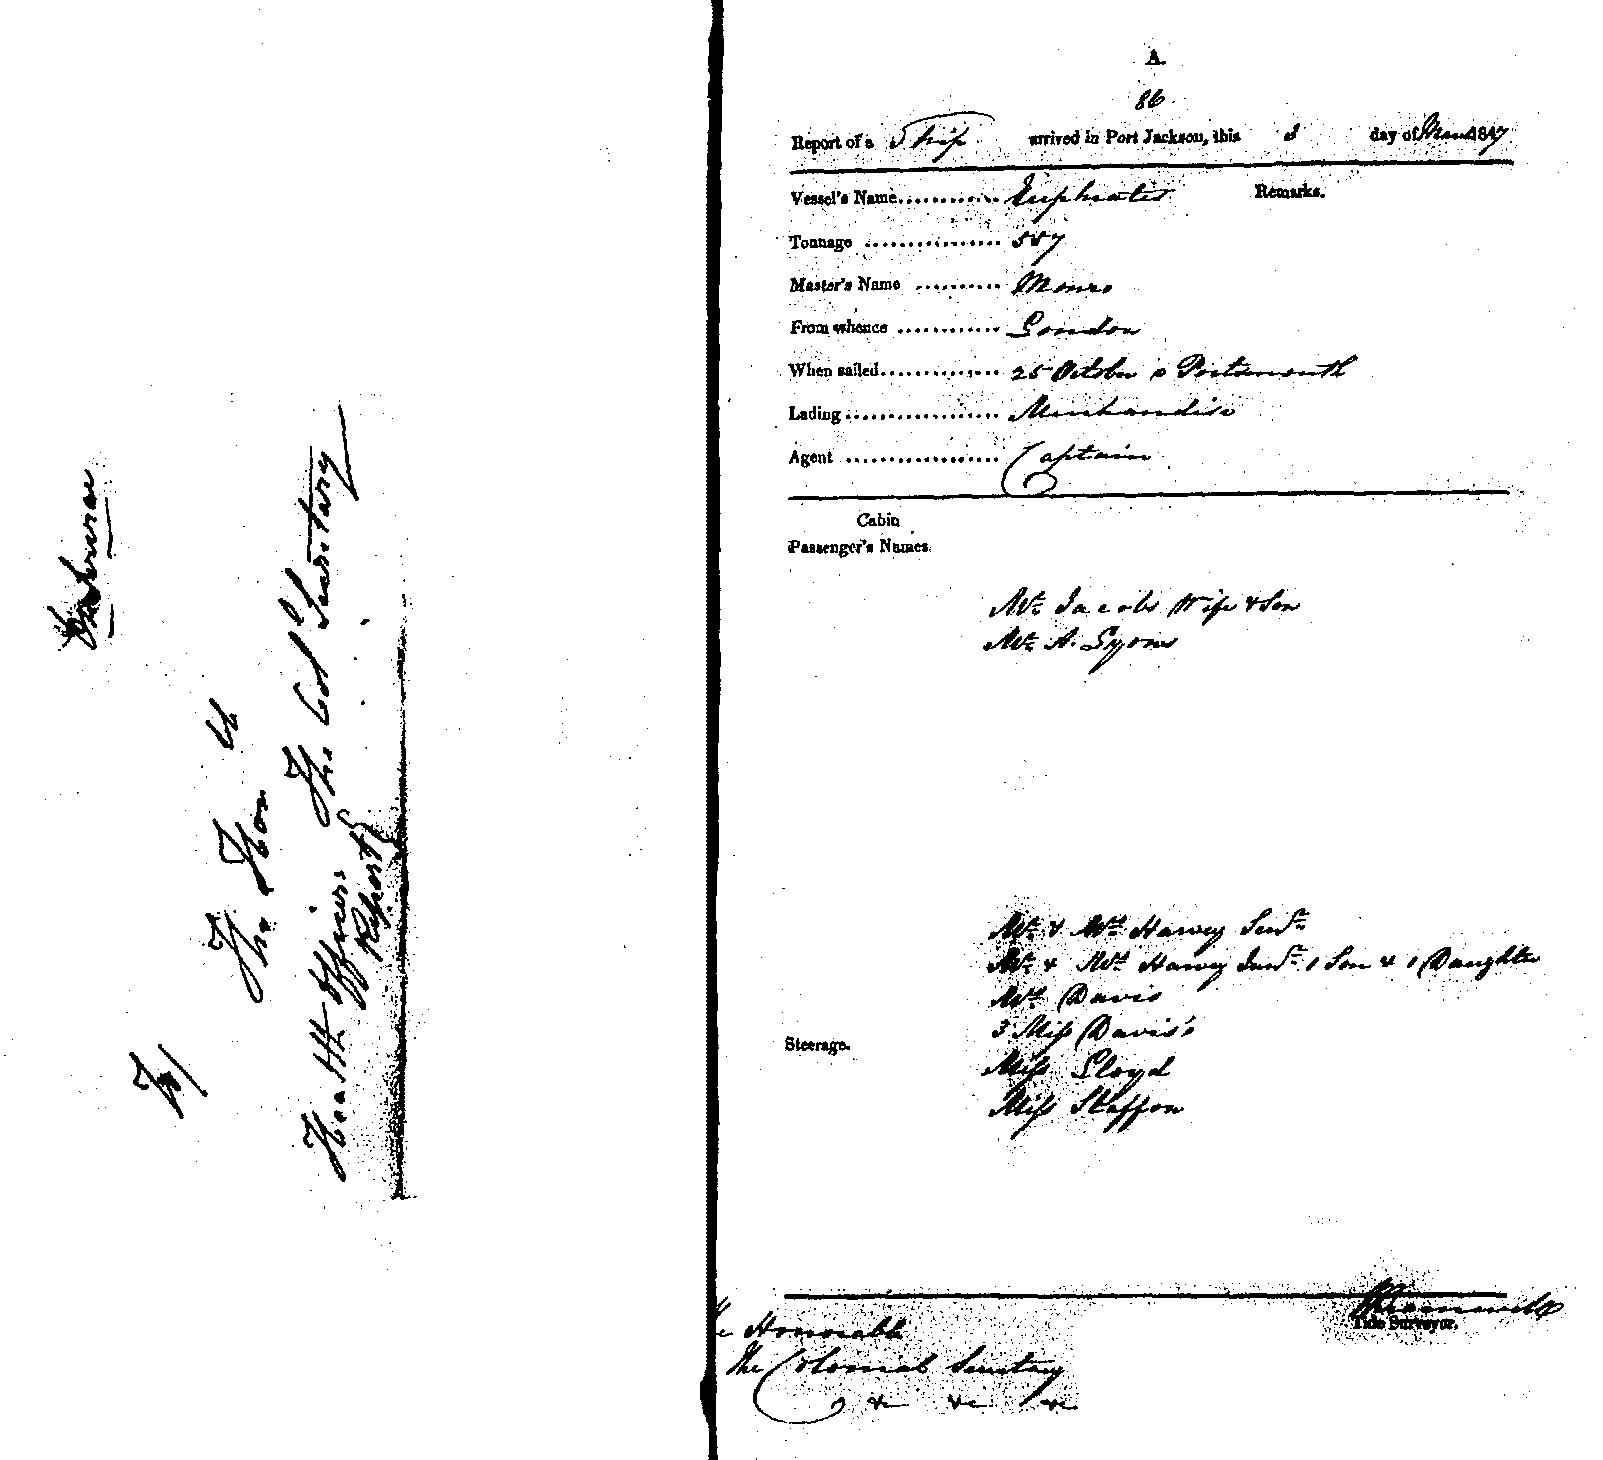 To/
The Hon ble
The Col l Secretary
Health Officers
Report
A.
86
Report of a Ship arrived in Port Jackson, this 3 day of March 1847
Vessel's Name............ Euphrates Remarks.
Tonnage ................ 557
Master's Name .......... Monro
From whence ............ London
When sailed............. 25 October & Portsmouth
Lading.................. Merchandise
Agent .................. Captain
Cabin
Passenger's Names.
Mr. Jacobs Wife & Son
Mr. A. Lyons
Mr. & Mrs. Harvey Senr.
Mr. & Mrs. Harvey Junr. 1 Son & 1 Daughter
Mrs. Davis
3 Miss Davis's
Steerage.
Miss Lloyd
Miss Staffon
Tide Surveyor.
The Honorable
The Colonial Secretary
&c &c &c